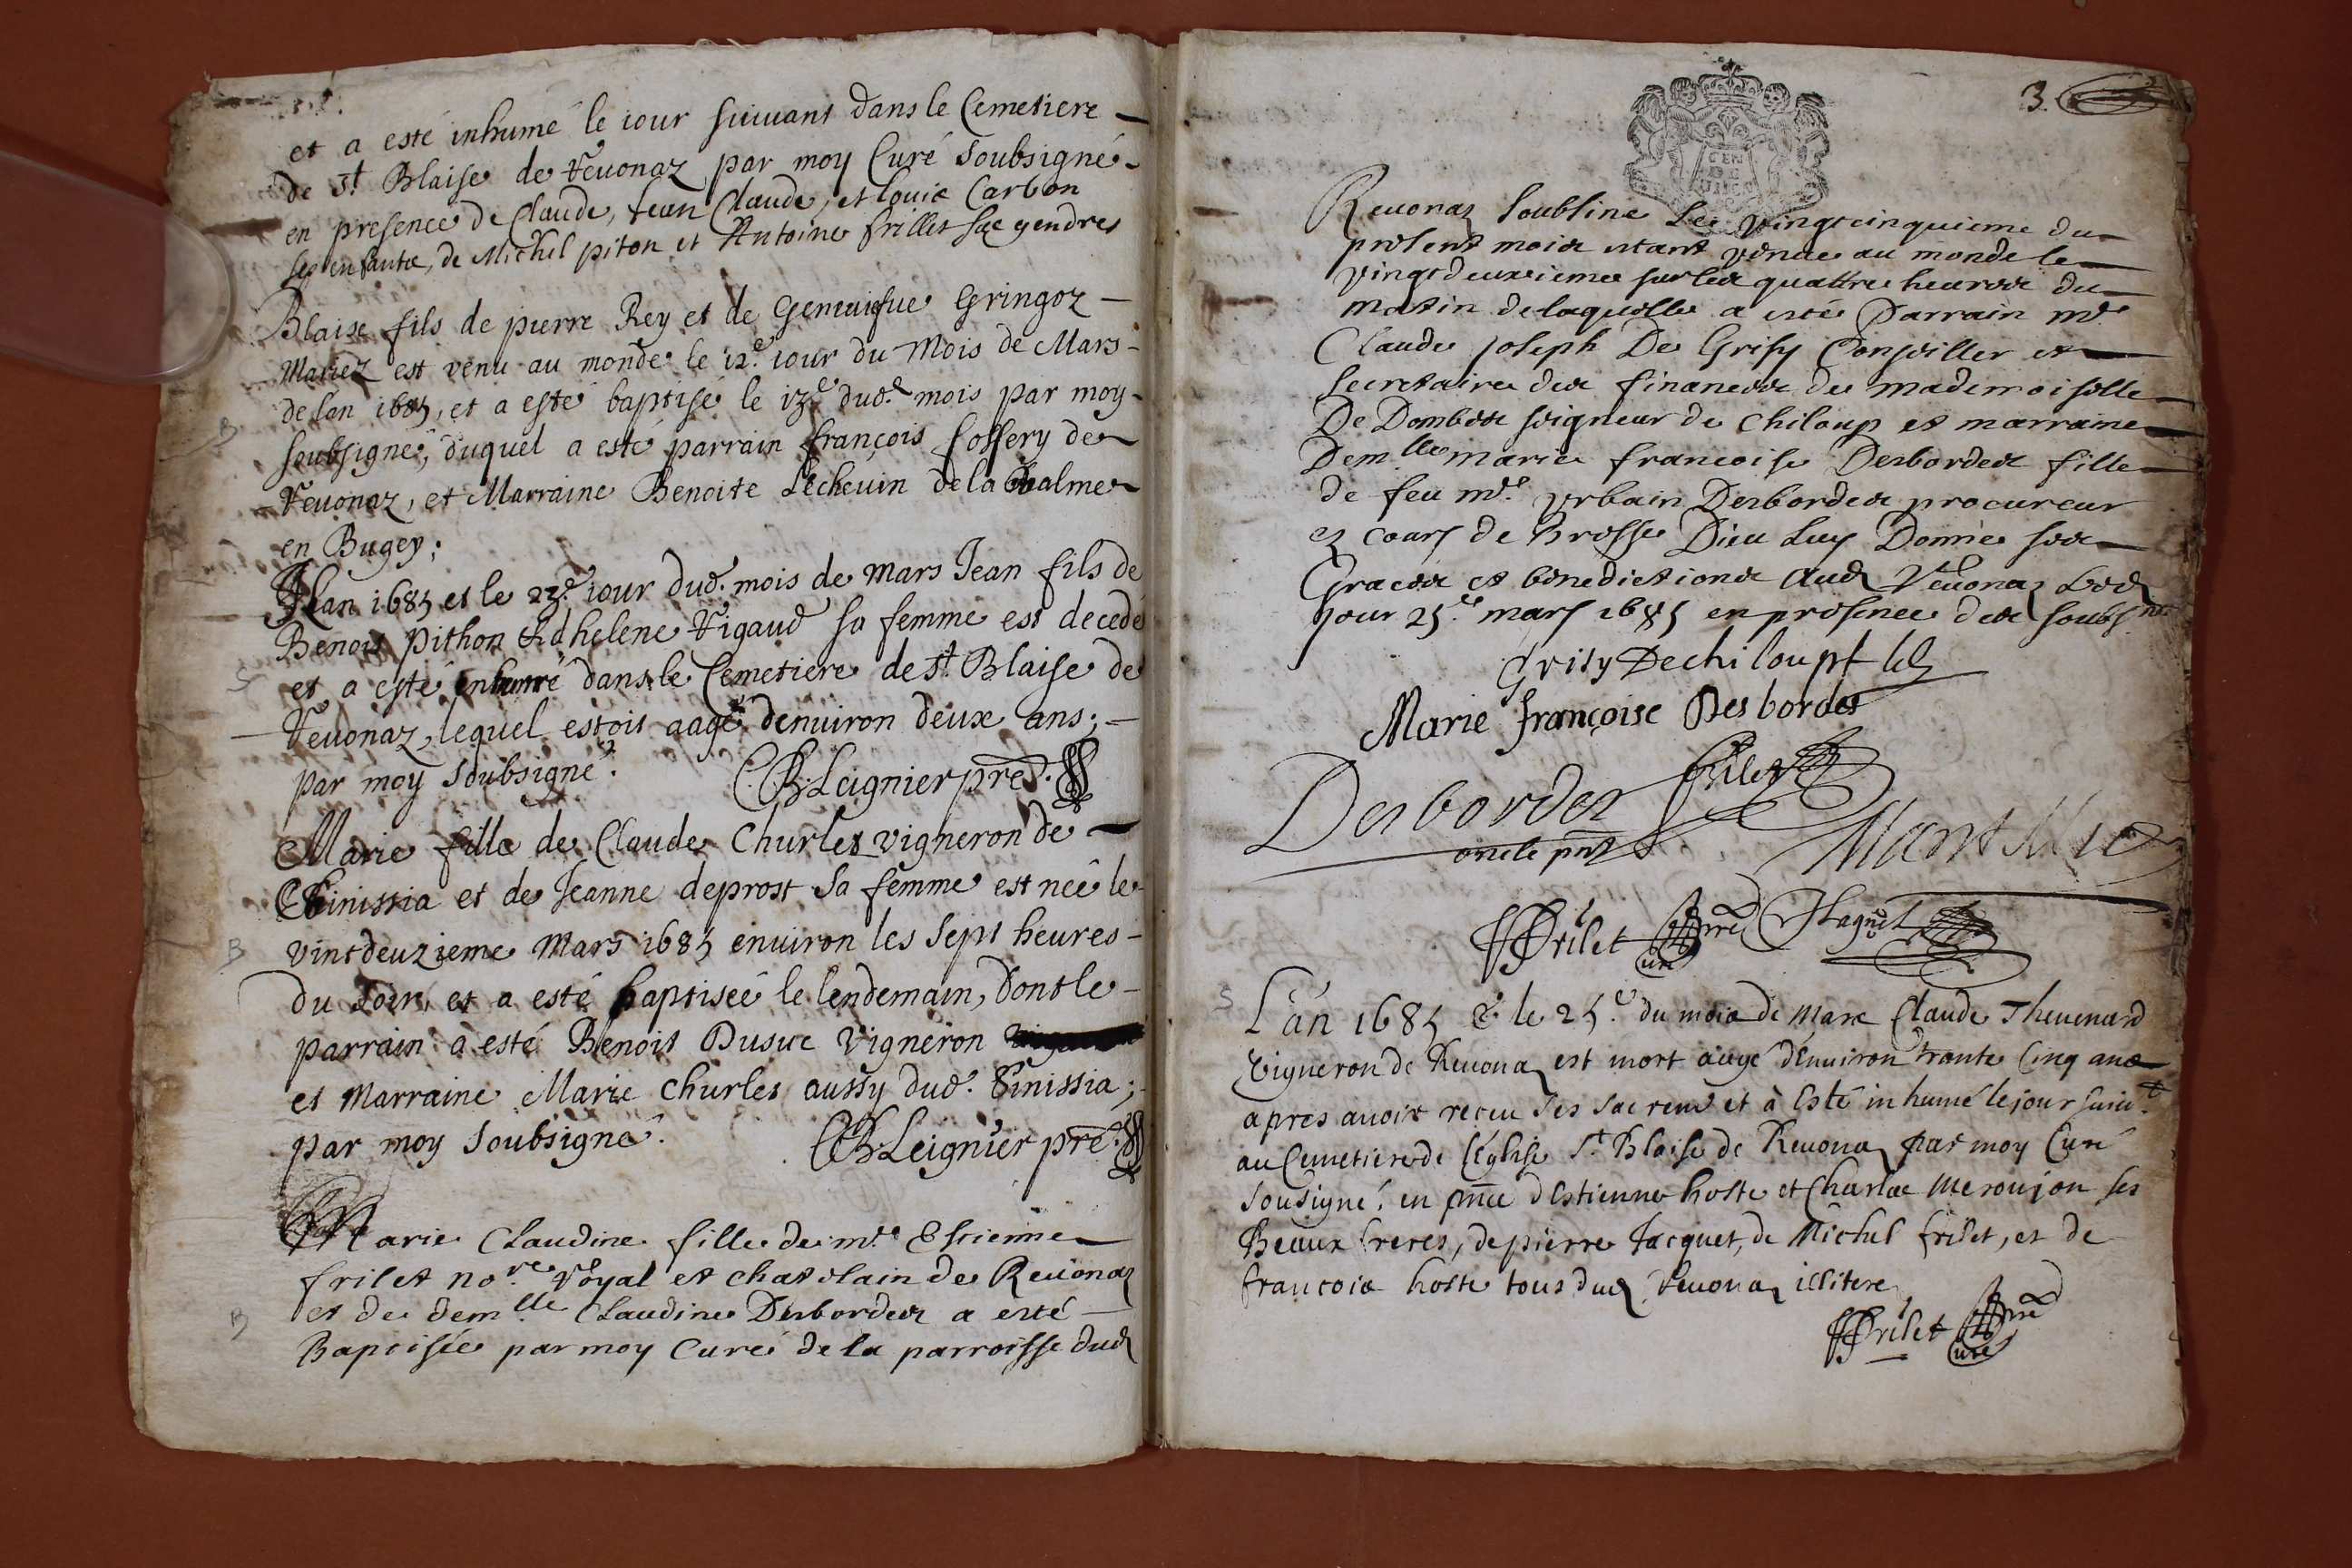 et a esté inhumé le iour suiuant dans le Cemetiere
de St Blaise de Reuonaz par moy Curé Soubsigné
en presence de Claude, Jean Claude, et louis Carbon
ses enfants, de Michel piton et Antoine frillet ses gendres
Blaise fils de pierre Rey et de Geneuiefue Gringoz
Mariez est venu au monde le 12.e iour du Mois de Mars
de lan 1685, et a esté baptisé le 13e dud. mois par moy
soubsigné, duquel a esté parrain françois fossery de
Reuonaz, et Marraine Benoite Lecheuin de la Balme
en Bugey;
Lan 1685 et le 23.e iour dud. mois de mars Jean fils de
Benoit pithon & d helene Rigaud sa femme est decedé
et a esté enterré dans le Cemetiere de St. Blaise de
Reuonaz, lequel estoit aagé denuiron deux ans;
par moy Soubsigné. CB Leignier pre.
Marie fille de Claude Churlet vigneron de
Binissia et de Jeanne deprost sa femme est neé le
vintdeuzieme Mars 1685 enuiron les Sept heures
du Soir, et a esté baptiseé le lendemain, dont le
parrain a esté Benoit Dusuc vigneron
et Marraine Marie Churlet aussy dud. Binissia;
par moy Soubsigné. CB Leignier pre.
Marie Claudine fille de mr. Estienne
frilet no.re Royal et chatelain de Reuonaz
et de dem.lle Claudine Desbordes a esté
Baptisée par moy Curé de la parroisse dud
3.
CEN
DE
Reuonaz soubsine Le vingtcinquieme du
present mois estant venue au monde le
vingtdeuxieme sur les quattre heures du
matin de laquelle a esté Parrain mr.
Claude Joseph De Grisy Conseiller et
Secretaire des finances de mademoiselle
De Dombes seigneur de Chiloup et marraine
Dem.lle marie francoise Desbordes fille
de feu mr. Vrbain Desbordes procureur
ez cours de Bresse Dieu Luy Donne ses
Graces et benedictions Aud Reuonaz Led
jour 25.e mars 1685 en presence des soubs.nes
Grisy Dechiloup
Marie Françoise Desbordes
Desbordes frilet
oncle pnt
frilet pre Curé Hagnet
L'an 1685 & le 25.e du mois de Mars Claude Theuenard
Vigneron de Reuonaz est mort aagé d'Enuiron trante Cinq ans
apres auoir receu ses sacrem.s et à Esté inhumé le jour suiu.t
au Cemetiere de l'Eglise St. Blaise de Reuonaz par moy Curé
Sousigné. en pnce d'Estienne hoste et Charles Meroujon ses
Beaux freres, de pierre Jacquet, de Michel frilet, et de
francois hoste tous dud Reuonaz illitere
frilet pre
Curé